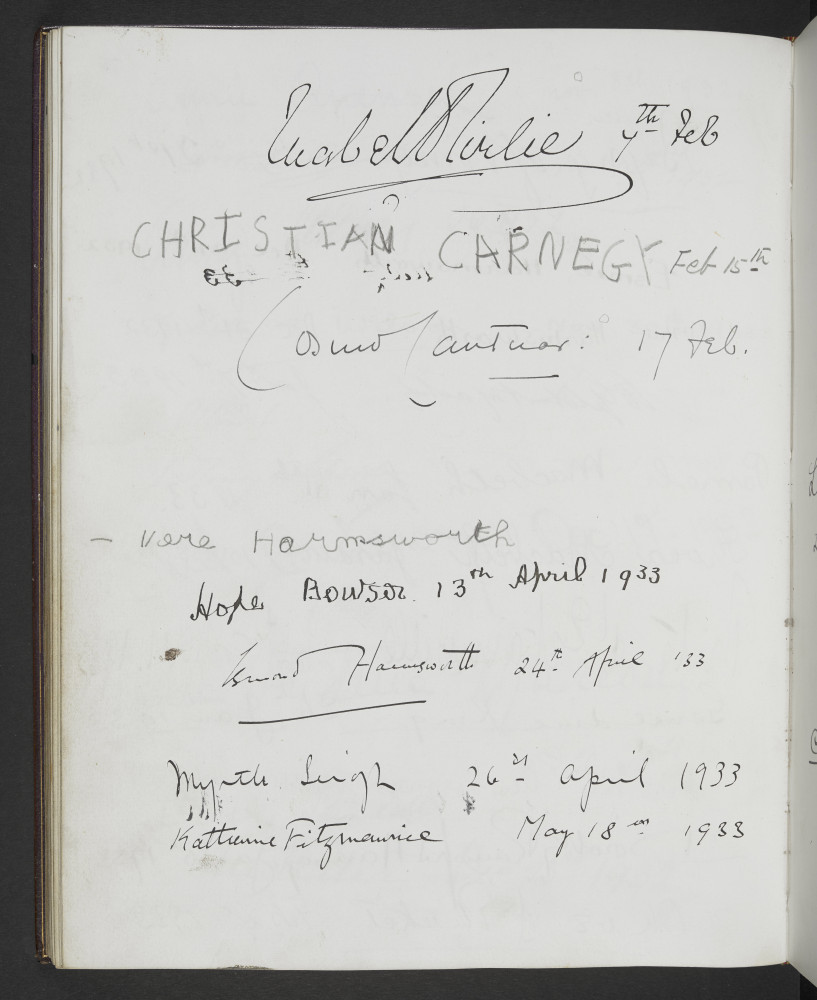 Isabel Mirlie 7th Feb
CHRISTIAN CARNEGY Feb 15th
Cosmo Cantuar: 17 Feb.
- Vere Harmsworth
Hope Bowser. 13th April 1933
Esmond Harmsworth 24th April '33
Singh 26 April 1933
Katherine Fitzmaurice May 18 1933